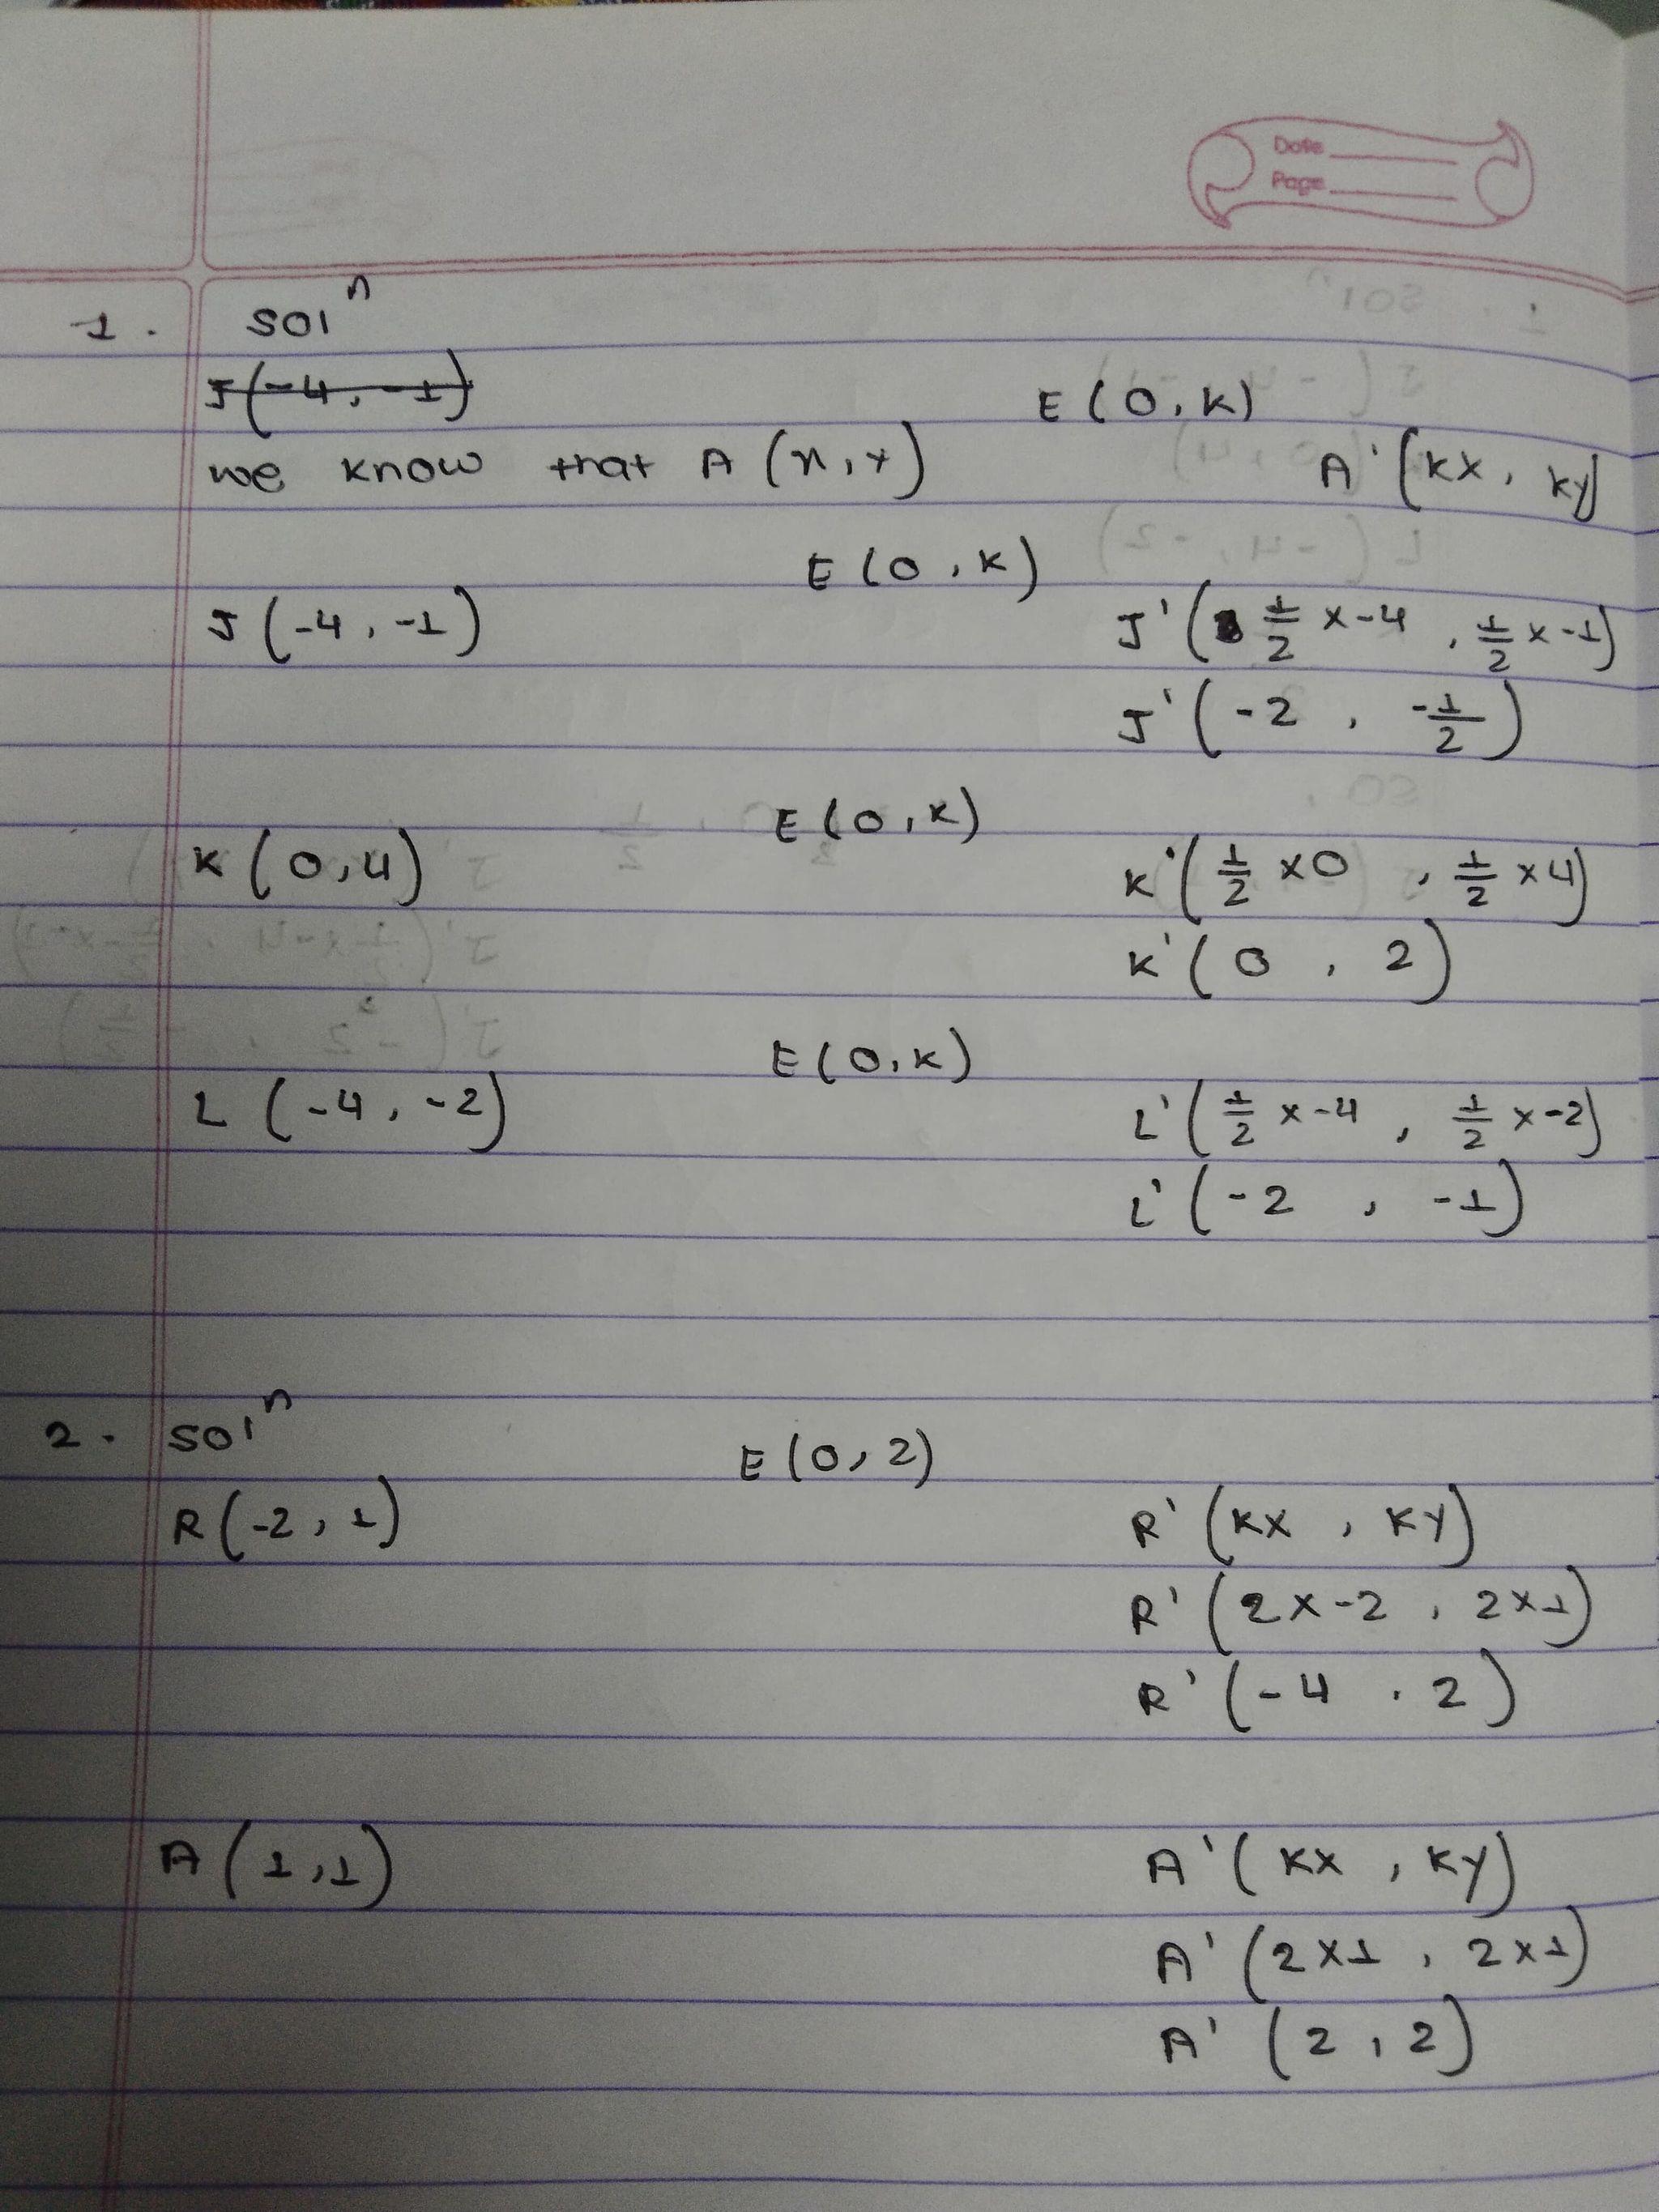 Date
Page
1. Solⁿ
J(-4, -1)
E(0,K)
we know that A (x,y) A'(Kx, Ky)
E(0,K)
J(-4,-1) J'(1/2 x-4, 1/2 x-1)
J'(-2, -1/2)
E(0,K)
K(0,4) K'(1/2 x0, 1/2 x4)
K'(0, 2)
E(0,K)
L(-4,-2) L'(1/2 x-4, 1/2 x-2)
L'(-2, -1)
2. Solⁿ
E(0,2)
R(-2,1) R'(Kx, Ky)
R'(2x-2, 2x1)
R'(-4, 2)
A(1,1) A'(Kx, Ky)
A'(2x1, 2x1)
A'(2,2)